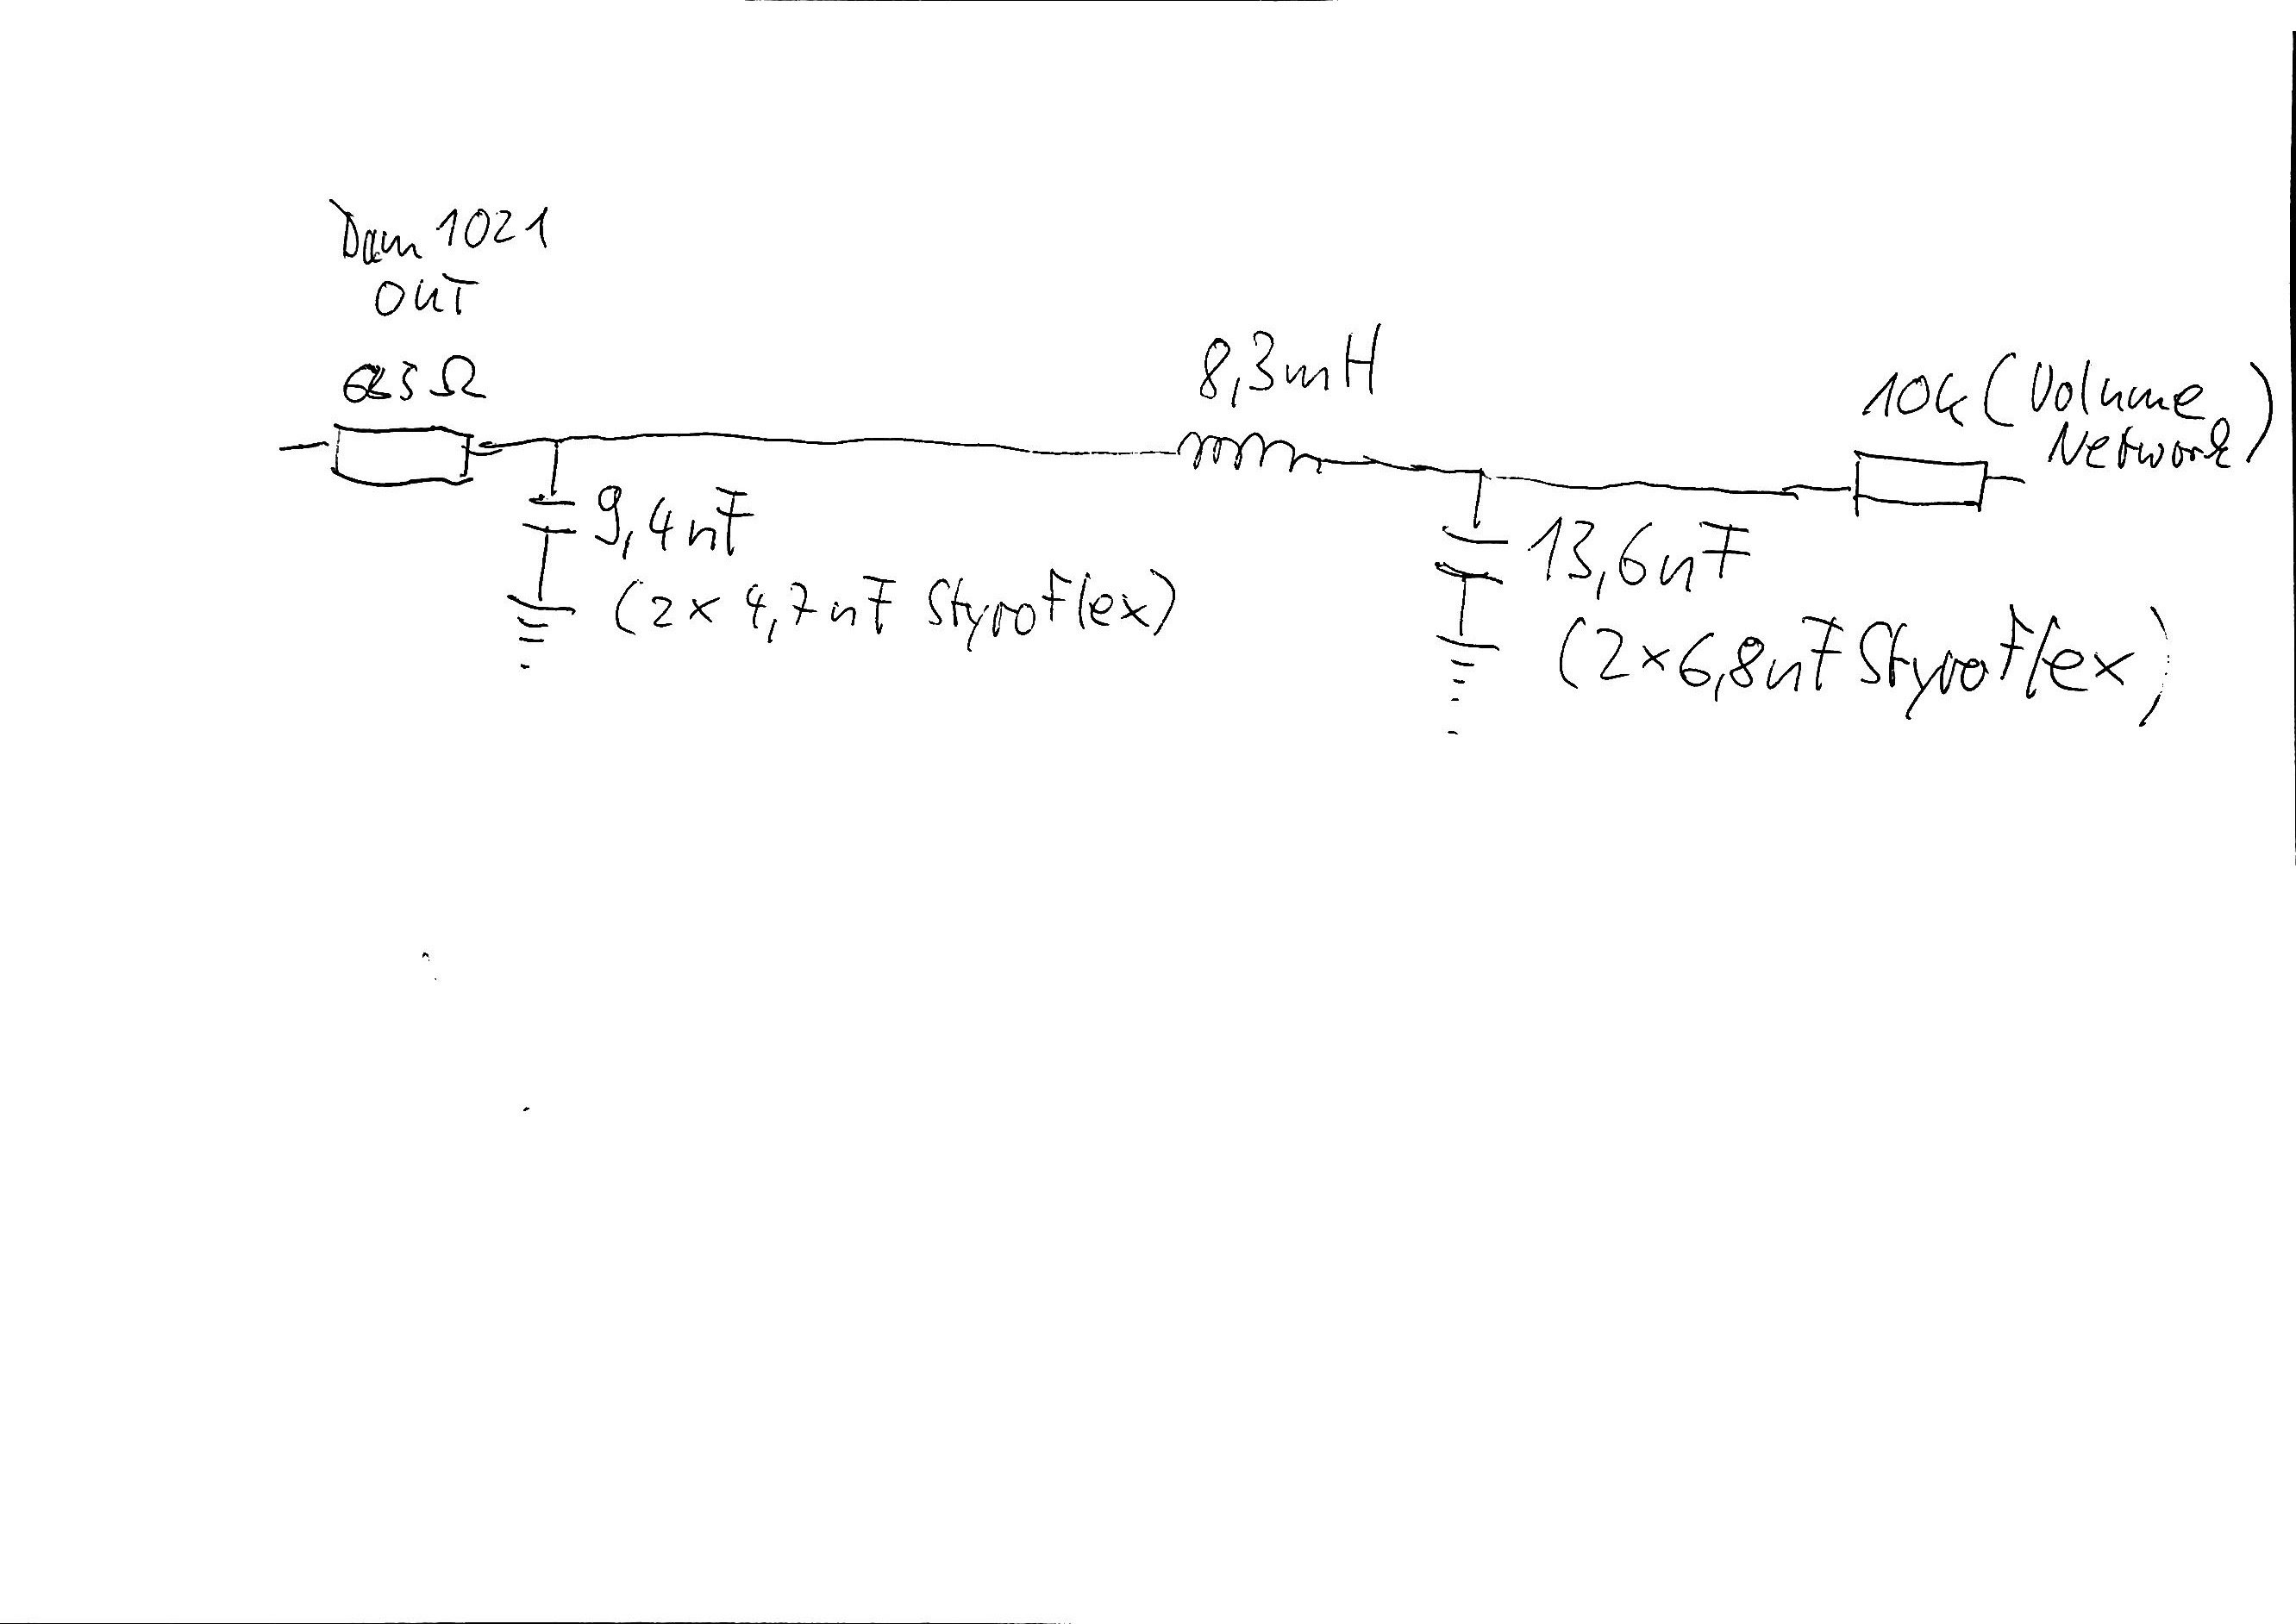 Dam 1021
OUT
625 Ω
8,3mH
10k (Volume
Network)
9,4nF
(2x 4,7nF Styroflex)
13,6nF
(2x6,8nF Styroflex)